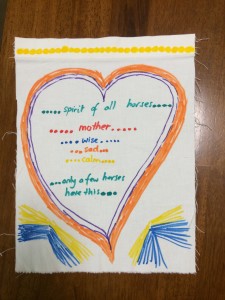 .....spirit of all horses.....
..... mother.....
.... wise....
....sad....
....calm....
....only a few horses
have this....